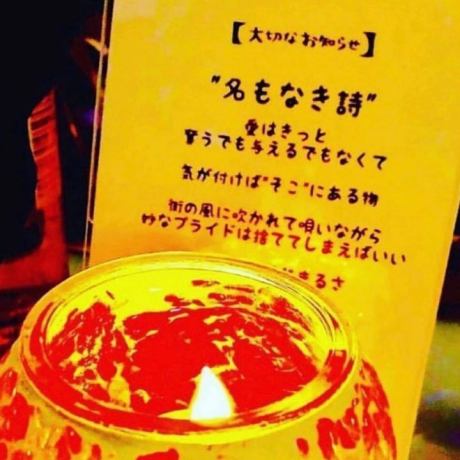 【大切なお知らせ】
"名もなき詩"
愛はきっと
奪うでも与えるでもなくて
気が付けば"そこ"にある物
街の風に吹かれて唄いながら
妙なプライドは捨ててしまえばいい
きるさ